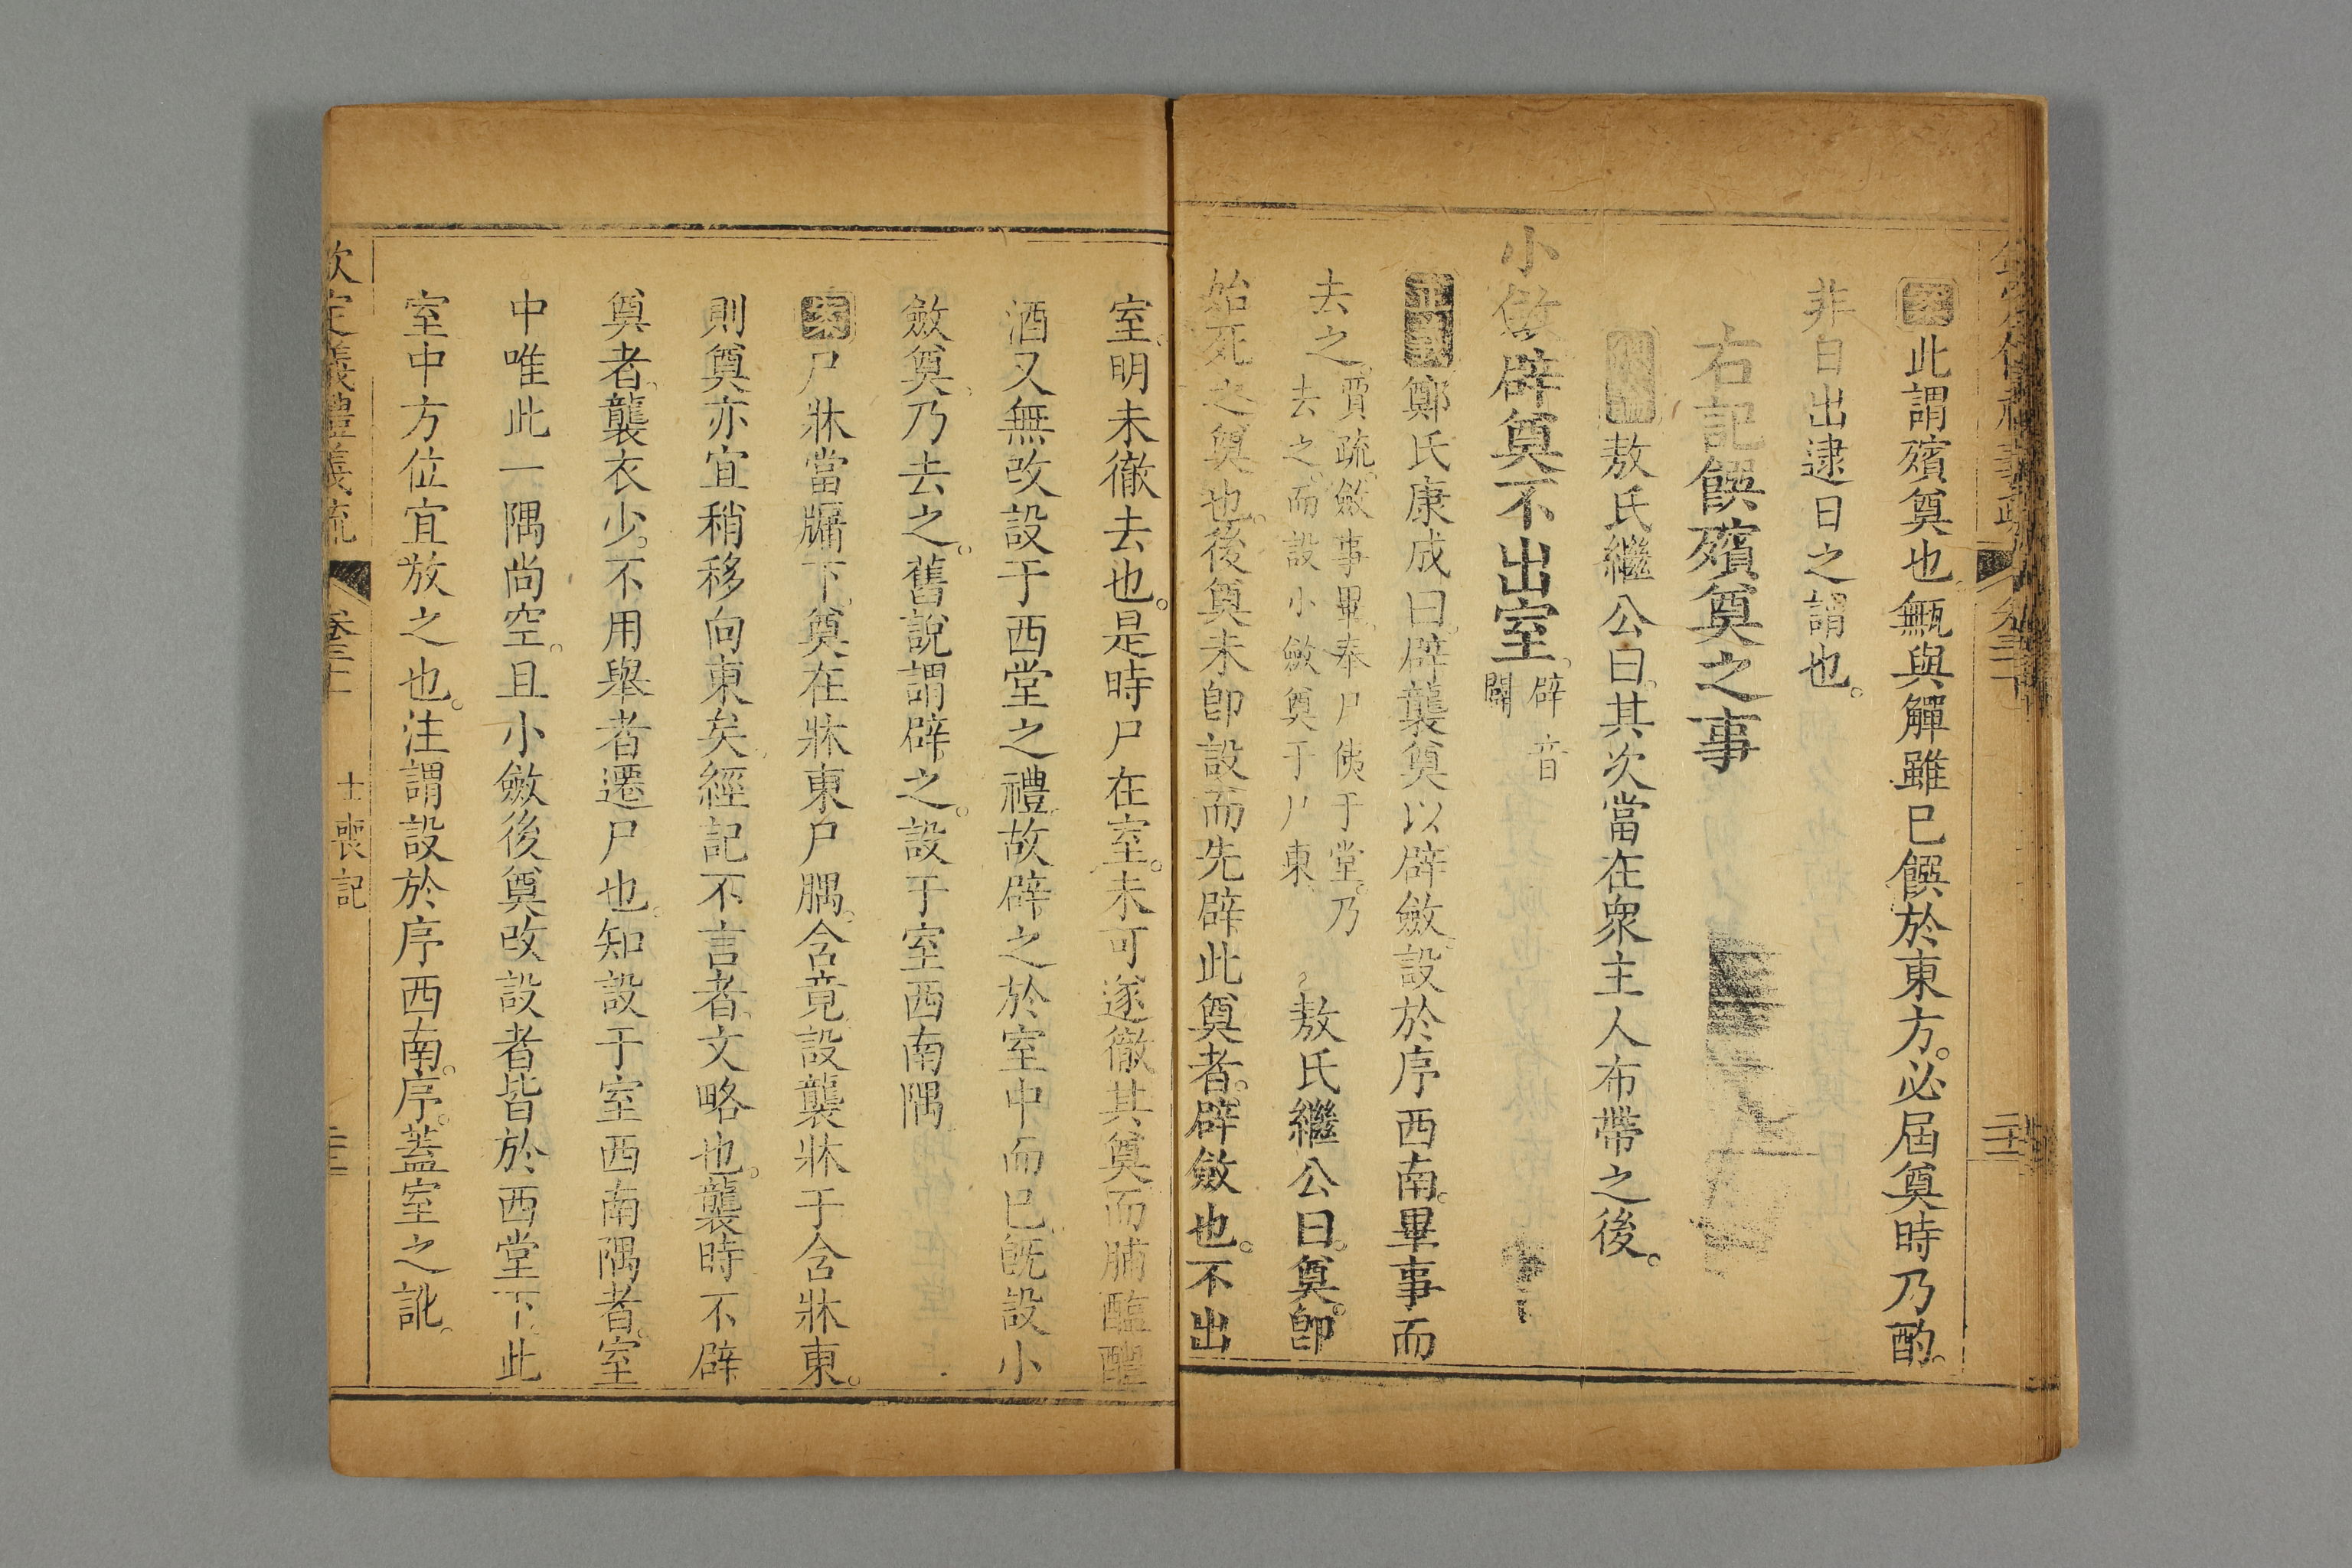 案此謂殯奠也甒與觶雖已饌於東方必屆奠時乃酌
非自出逮日之謂也
右記饌殯奠之事
敖氏繼公曰其次當在衆主人布帶之後
小斂辟奠不出室辟音
闢
正義鄭氏康成曰辟襲奠以辟斂設於序西南畢事而
去之賈疏斂事畢奉尸侇于堂乃
去之而設小斂奠于尸東
敖氏繼公曰奠卽
始死之奠也後奠未卽設而先辟此奠者辟斂也不出
室明未徹去也是時尸在室未可遂徹其奠而脯醢醴
酒又無改設于西堂之禮故辟之於室中而已旣設小
斂奠乃去之舊說謂辟之設于室西南隅
案尸牀當牖下奠在牀東尸腢含竟設襲牀于含牀東
則奠亦宜稍移向東矣經記不言者文略也襲時不辟
奠者襲衣少不用舉者遷尸也知設于室西南隅者室
中唯此一隅尚空且小斂後奠改設者皆於西堂下此
室中方位宜放之也注謂設於序西南序蓋室之訛
欽定義禮義疏 卷三十 士喪記